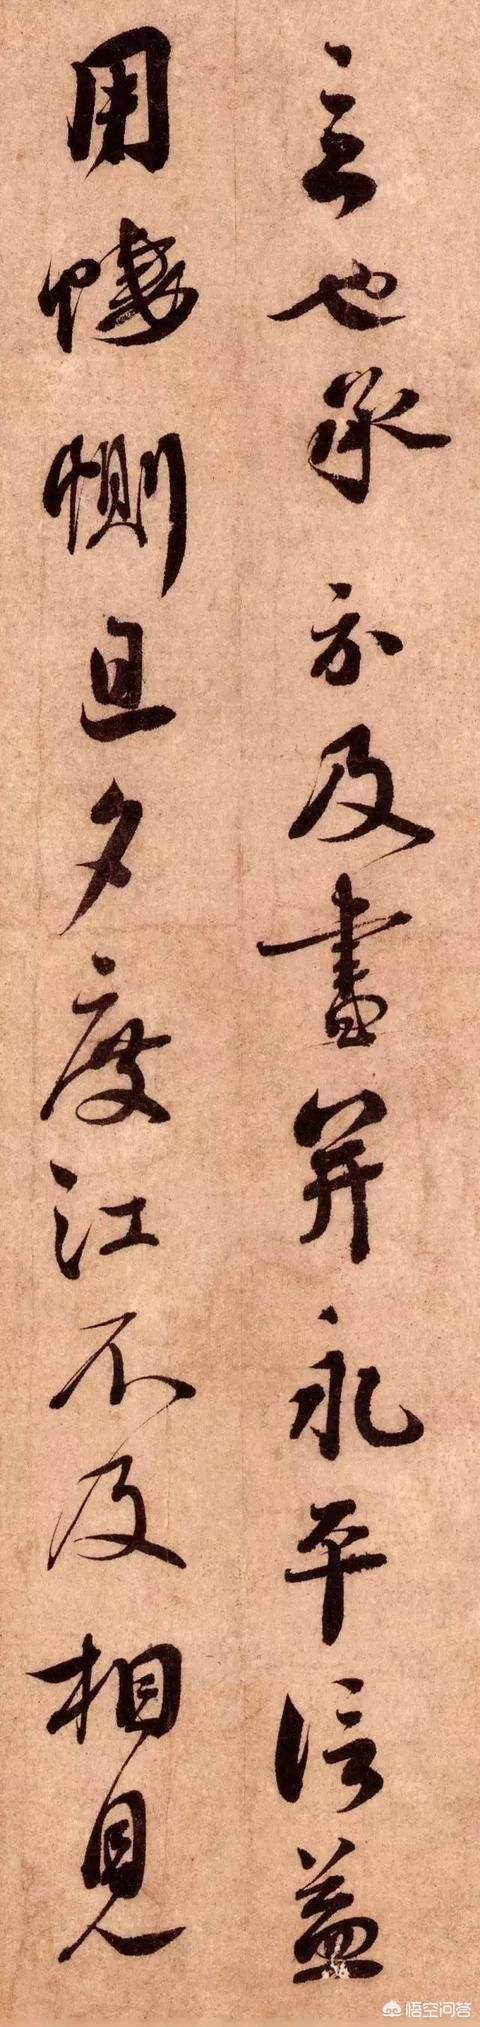 言也承示及書并永平信益
用悽惻旦夕度江不及相見
悟空问答